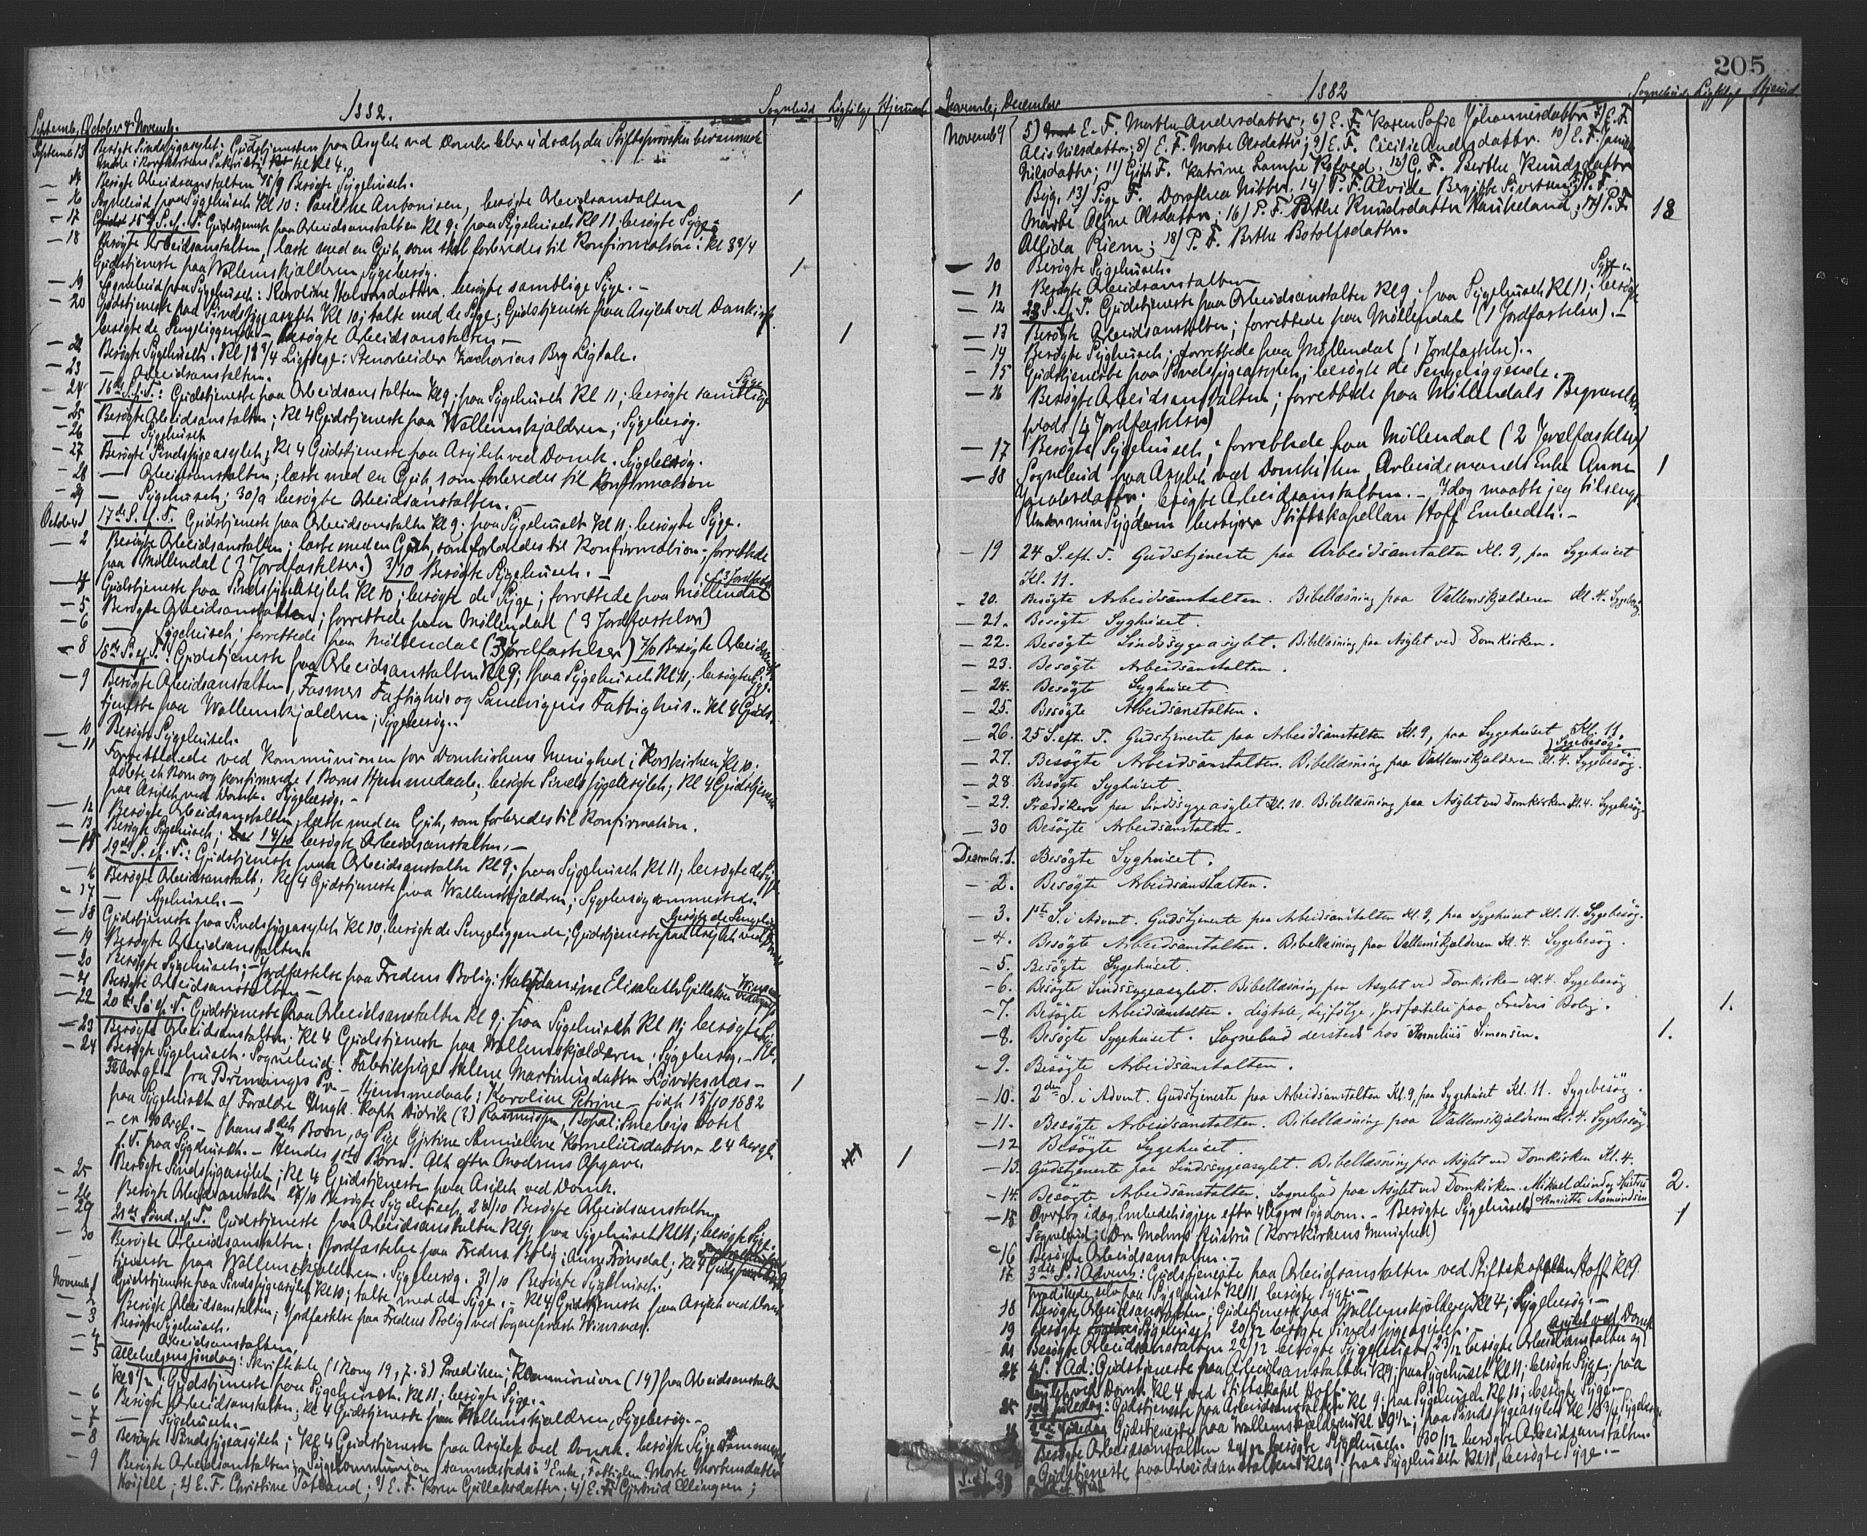 1882.
Sognebud Ligfølge Hjemmed
Septemb, October & Novemb.
Septemb 13 Besøgte Sindssygeasylet; Gudstjenesten paa Asylet ved Domk. blev udsat, da Stiftsprovsten
møde i Korskirkens Sakristi Kl. 4.
— 14 Besøgte Arbeidsanstalten 15/9 Besøgte Sygehuset.
— 16 Sognebud paa Sygehuset Kl 10: Pauline Antonisen, besøgte Arbeidsanstalten 1
— 17 15 S. e. T. Gudstjeneste paa Arbeidsanstalten Kl 9; paa Sygehuset Kl 11; besøgte Syge
— 18 Besøgte Arbeidsanstalten, læste med en Gut, som skal forberedes til Konfirmation; Kl 3 3/4
Gudstjeneste paa Wallemskjælderen Sygebesøg.
— 19 Sognebud paa Sygehuset: Karoline Halvorsdatter. besøgte samtlige Syge. — 1
— 20 Gudstjeneste paa Sindssygeasylet Kl 10; talte med de Syge; Gudstjeneste paa Asylet ved Domkirk.
besøgte de Sengeliggende — besøgte Arbeidsanstalten —
Besøgte Sygehuset. Ligfølge: Stenarbeider Zacharias Brg Ligtale. 1
— 23 — Arbeidsanstalten.
— 24 16de S. e. T.: Gudstjeneste paa Arbeidsanstalten Kl 9; paa Sygehuset Kl 11; besøgte samtlige Syge
— 25 Besøgte Arbeidsanstalten; Kl 4 Gudstjeneste paa Wallemskjælderen; Sygebesøg.
— 26 — Sygehuset
— 27 Besøgte Sindssygeasylet; Kl 4 Gudstjeneste paa Asylet ved Domk. Sygebesøg.
— 28 — Arbeidsanstalten; læste med en Gut, som forberedes til Konfirmation
— 29 — Sygehuset; 30/9 besøgte Arbeidsanstalten. —
October 1 17de S. e. T. Gudstjeneste paa Arbeidsanstalten Kl 9; paa Sygehuset Kl 11; besøgte Syge.
— 2 Besøgte Arbeidsanstalten; læste med en Gut, som forberedes til Konfirmation — forrettede
paa Møllendal (3 Jordfæstelser.) 3/10 Besøgte Sygehuset. —
— 4 Gudstjeneste paa Sindssygeasylet Kl 10; besøgte de Syge; forrettede paa Møllendal (3 Jordfæst
— 5 Besøgte Arbeidsanstalten; forrettede paa Møllendal (3 Jordfæstelser)
— 6 — Sygehuset; forrettede paa Møllendal (3 Jordfæstelser) 7/10 Besøgte Arbeidsanst
— 8 18de S. e. T.: Gudstjeneste paa Arbeidsanstalten Kl 9; paa Sygehuset Kl 11; besøgte Syge.
— 9 Besøgte Arbeidsanstalten, Fasmers Fattighus og Sandvigens Fattighus. Kl 4 Guds-
tjeneste paa Wallemskjælderen; Sygebesøg.
— 10 Besøgte Sygehuset.
— 11 Forrettede ved Kommunionen for Domkirkens Menighed i Korskirken Kl 10.
døbte et Barn og konfirmerede 1 Barns Hjemmedaab; besøgte Sindssygeasylet; Kl 4 Gudstjeneste
paa Asylet ved Domk. Sygebesøg. —
— 12 Besøgte Arbeidsanstalten; læste med en Gut, som forberedes til Konfirmation.
— 13 Besøgte Sygehuset; 14/10 besøgte Arbeidsanstalten. —
— 15 19de S. e. T.: Gudstjeneste paa Arbeidsanstalten Kl 9; paa Sygehuset Kl 11; besøgte de Syge
— 16 Besøgte Arbeidsanstalt; Kl 4 Gudstjeneste paa Wallemskjælderen; Sygebesøg sammesteds.
— 17 — Sygehuset. —
— 18 Gudstjeneste paa Sindssygeasylet Kl 10; besøgte de Sengeliggende; Gudstjeneste paa Asylet ved
— 19 Besøgte Arbeidsanstalten
— 20 Besøgte Sygehuset; — Jordfæstelse paa Fredens Bolig: Elisabeth
— 21 Besøgte Arbeidsanstalten —
— 22 20de S. e. T. Gudstjeneste paa Arbeidsanstalten Kl 9; paa Sygehuset Kl 11; besøgte Syge.
— 23 Besøgte Arbeidsanstalten; Kl 4 Gudstjeneste paa Wallemskjælderen; Sygebesøg. —
— 24 Besøgte Sygehuset. Sognebud: Fabrikpige Helene Martinusdatter
fra Hjemmedaab: Karoline Petrine — født 15/10 1882 1
paa Sygehuset af Forældre Ungk. Didrik Rasmussen,
hans 2det Barn, og Pige Gjertine Korneliusdatter, 24 Aar gl.
f. T. paa Sygehuset. — Hendes 1ste Barn. Alt efter Moderens Opgave. 1
— 25 Besøgte Sindssygeasylet; Kl 4 Gudstjeneste paa Asylet ved Domk.
— 26 Besøgte Arbeidsanstalten 27/10 Besøgte Sygehuset, 28/10 Besøgte Arbeidsanstalten
— 29 21de Sønd. e. T. Gudstjeneste paa Arbeidsanstalten Kl 9; paa Sygehuset Kl 11; besøgte Syge.
— 30 Besøgte Arbeidsanstalten; Jordfæstelse paa Fredens Bolig: Kl 4 Guds-
tjeneste paa Wallemskjælderen. Sygebesøg. 31/10 Besøgte Sygehuset.
Novemb 1 Gudstjeneste paa Sindssygeasylet Kl 10; talte med de Syge. — Kl 4 Gudstjeneste paa Asylet ved Domk
Besøgte Arbeidsanstalten; Jordfæstelse paa Fredens Bolig ved Sogneprest
— 3 Besøgte Sygehuset.
— 4 — Arbeidsanstalten.
— 5 Allehelgenssøndag: Skriftetale (1 Kong 19, 7-8) Prædiken; Kommunion (19) paa Arbeidsanstalten
Gudstjeneste paa Sygehuset Kl 11; besøgte Syge. —
— 6 Besøgte Arbeidsanstalten; Kl 4 Gudstjeneste paa Wallemskjælderen, Sygebesøg —
— 7 — Sygehuset. —
— 8 Besøgte Sindssygeasylet; Kl 4 Gudstjeneste paa Asylet ved Domk. besøgte Syge
— 9 Besøgte Arbeidsanstalten; Sygecommunion sammesteds: 1) Enke, Fattiglem Marte Mortensdatter
2) E. F. Christine 3) E. F. Karen Gullaksdatter; 4) E. F. Gjertrud Ellingsen;
205
1882
Sognebud Ligfølge Hjemd
Novembr, December
Novemb 9 5) E. F. Martha Andersdatter; 6) E. F. Karen Sofie Johannesdatter 7) E. F.
Alis Nilsdatter; 8) E. F. Marte Olsdatter; 9) E. F. Cecilie Andersdatter 10) E. F.
Nilsdatter; 11) Gift F. Katrine Lampe 12) G. F. Berthe Knudsdatter
Byg. 13) Pige F. Dorothea 14) P. F. Alvide Bergitte Sivertsen; P. F.
Marte Oline Olsdatter; 16) P. F. Berthe Knudsdatter Haukeland; 17) P. F. 18
Alfida Riem; 18) P. F. Berthe Botolfsdatter.
— 10 Besøgte Sygehuset.
— 11 Besøgte Arbeidsanstalten
— 12 23 S. e. T. Gudstjeneste paa Arbeidsanstalten Kl 9; paa Sygehuset Kl 11; besøgte Syge
— 13 Besøgte Arbeidsanstalten; forrettede paa Møllendal (1 Jordfæstelse). —
— 14 Besøgte Sygehuset; forrettede paa Møllendal (1 Jordfæstelse). —
— 15 Gudstjeneste paa Sindssygeasylet; besøgte de Sengeliggende. —
— 16 Besøgte Arbeidsanstalten; forrettede paa Møllendals Begravelses
plads (4 Jordfæstelser)
— 17 Besøgte Sygehuset; forrettede paa Møllendal (2 Jordfæstelser)
— 18 Sognebud paa Asylet ved Domkirken, Arbeidsmands Enke Anne 1
Jacobsdatter; besøgte Arbeidsanstalten. — Idag maatte jeg tilsengs
Under min Sygdom bestyrer Stiftskapellan Hoff Embedet. —
— 19 24 S. eft. T. Gudstjeneste paa Arbeidsanstalten Kl. 9, paa Sygehuset
Kl. 11.
— 20. Besøgte Arbeidsanstalten. Bibellæsning paa Vallemskjælderen Kl. 4. Sygebesøg
— 21. Besøgte Syghuset.
— 22. Besøgte Sindssygeasylet. Bibellæsning paa Asylet ved Domkirken.
— 23. Besøgte Arbeidsanstalten.
— 24. Besøgte Syghuset.
— 25. Besøgte Arbeidsanstalten.
— 26. 25 S. eft. T. Gudstjeneste paa Arbeidsanstalten Kl. 9, paa Sygehuset Kl. 11. Sygebesøg
— 27. Besøgte Arbeidsanstalten. Bibellæsning paa Vallemskjælderen Kl. 4. Sygebesøg.
— 28. Besøgte Syghuset.
— 29. Prædiken paa Sindssygeasylet Kl. 10. Bibellæsning paa Asylet ved Domkirken Kl. 4. Sygebesøg.
— 30 Besøgte Arbeidsanstalten.
Decembr. 1. Besøgte Syghuset.
— 2. Besøgte Arbeidsanstalten.
— 3. 1ste S. i Advent. Gudstjeneste paa Arbeidsanstalten Kl. 9, paa Sygehuset Kl. 11. Sygebesøg.
— 4. Besøgte Arbeidsanstalten. Bibellæsning paa Vallemskjælderen Kl. 4. Sygebesøg.
— 5. Besøgte Sygehuset.
— 6. Besøgte Sindssygeasylet. Bibellæsning paa Asylet ved Domkirken Kl. 4. Sygebesøg
— 7. Besøgte Arbeidsanstalten. Ligtale, Ligfølge, Jordfæstelse paa Fredens Bolig. 1.
— 8. Besøgte Sygehuset. Sognebud dersteds hos Kornelius Simonsen. 1.
— 9. Besøgte Arbeidsanstalten.
— 10. 2den S. i Advent. Gudstjeneste paa Arbeidsanstalten Kl. 9, paa Sygehuset Kl. 11. Sygebesøg.
— 11. Besøgte Arbeidsanstalten. Bibellæsning paa Vallemskjælderen Kl. 4. Sygebesøg.
— 12 Besøgte Sygehuset.
— 13. Gudstjeneste paa Sindssygeasylet. Bibellæsning paa Asylet ved Domkirken Kl. 4.
— 14. Besøgte Arbeidsanstalten. Sognebud paa Asylet ved Domkirken. Henriette Asmundsen 2.
— 15 Overtog idag Embedet igjen efter 4 Ugers Sygdom. — Besøgte Sygehuset 1
Sognebud: Hustru (Korskirkens Menighed)
— 16 Besøgte Arbeidsanstalten. —
17 3die S. i Advent: Gudstjeneste paa Arbeidsanstalten ved Stiftskapellan Hoff Kl 9
prædikede selv paa Sygehuset Kl 11, besøgte Syge. —
18 Besøgte Arbeidsanstalten; Gudstjeneste paa Wallemskjælderen Kl 4; Sygebesøg. —
19 Besøgte Sygehuset 20/12 besøgte Sindssygeasylet. — asylet ved Domk
21 Besøgte Arbeidsanstalten 22/12 besøgte Sygehuset 23/12 besøgte Arbeidsanstalten og
24 4 S. i Ad: Gudstjeneste paa Arbeidsanstalten Kl 9; paa Sygehuset Kl 11; besøgte Syge; paa
Asylet ved Domk Kl 4 ved Stiftskapel. Hoff
25 1ste Juledag: Gudstjeneste paa Arbeidsanstalten Kl 9; paa Sygehuset Kl 11; besøgte Syge —
26 2den Juledag Gudstjeneste paa Wallemskjælderen; paa Sindssygeasylet Sygebesøg
Besøgte Arbeidsanstalten besøgte Sygehuset. 30/12 besøgte Arbeidsanstalten.
Gudstjeneste paa Arbeidsanstalten Kl 9; paa Sygehuset Kl 11, besøgte Syge. —